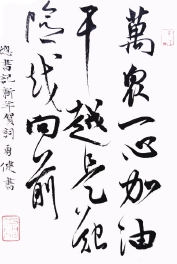 萬眾一心加油
干越是艱
險越向前
總書記新年賀詞 書